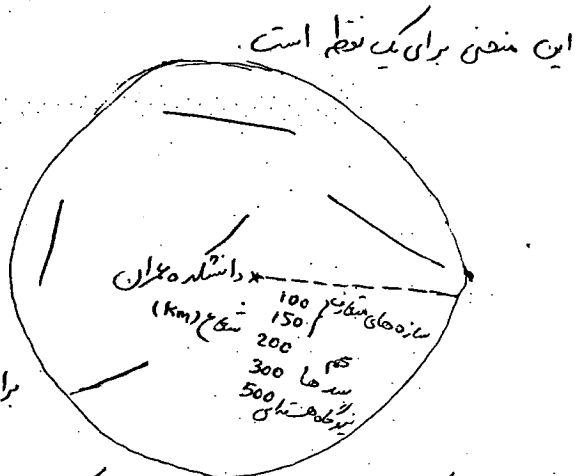 این منحنی برای یک نقطه است.
دانشکده عمران
سازه‌های متعارف
100
150
شعاع (Km)
200
مهم
سدها 300
نیروگاه هسته‌ای 500